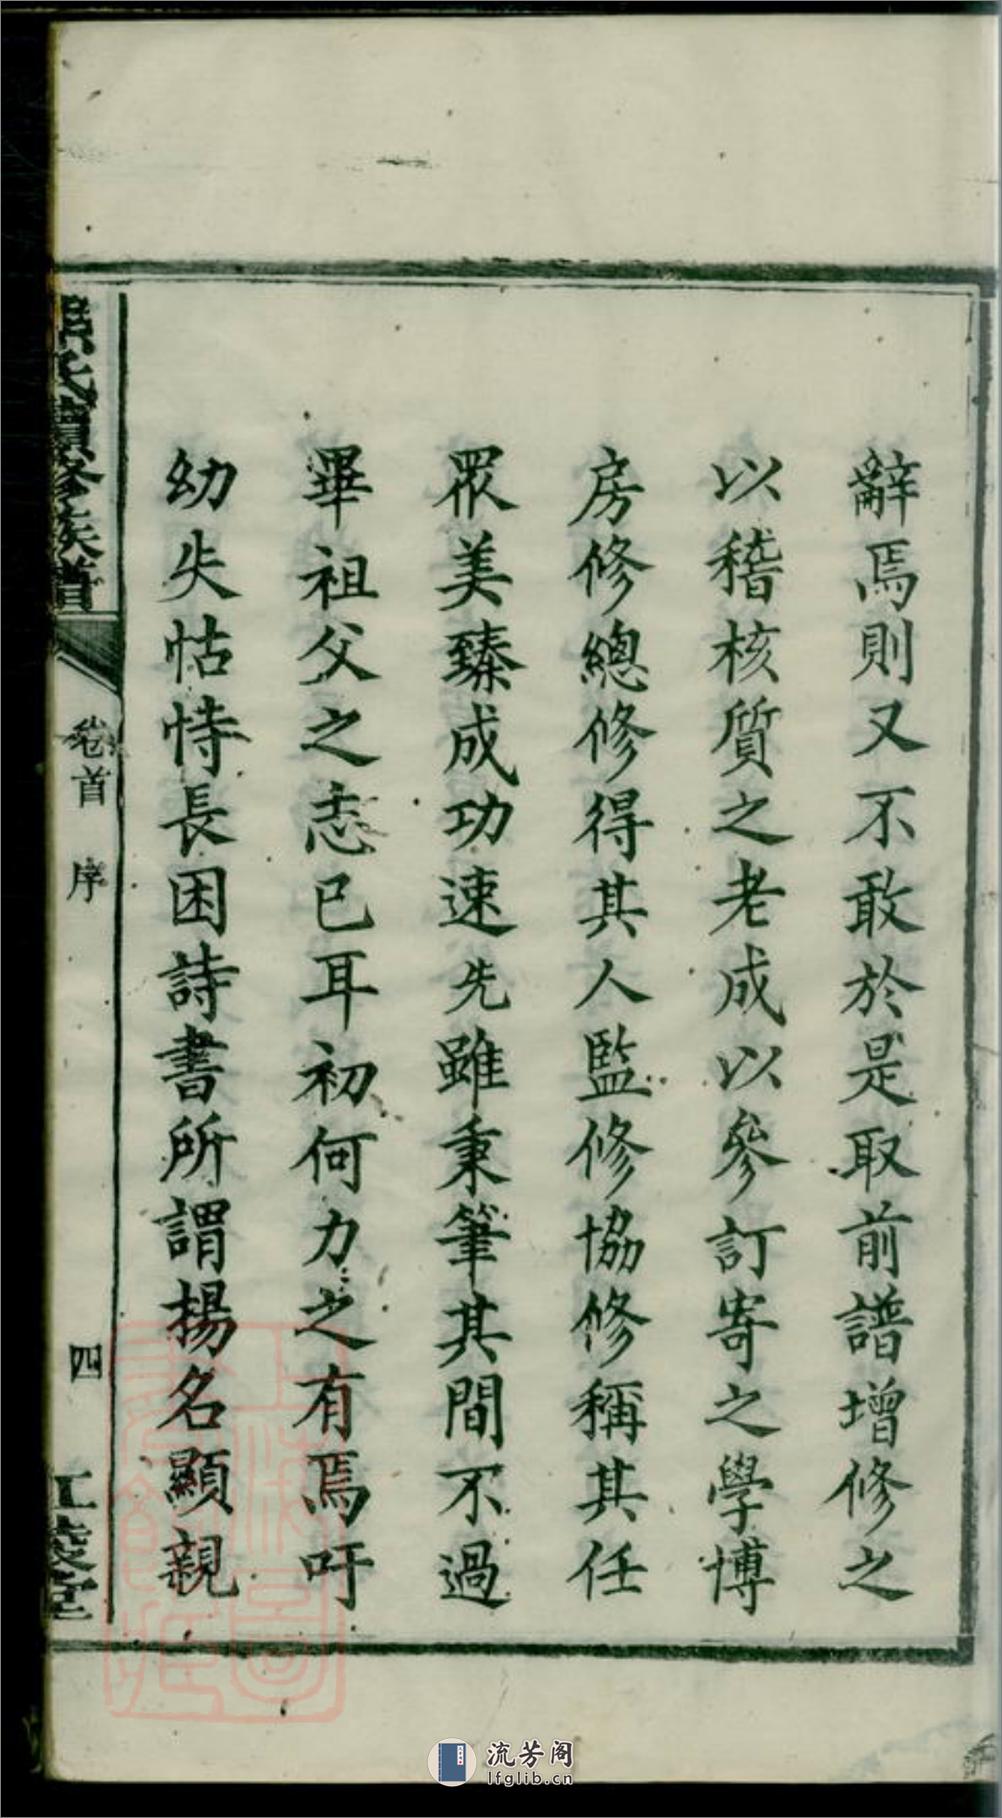 辭焉則又不敢於是取前譜增修之
以稽核質之老成以參訂寄之學博
房修總修得其人監修協修稱其任
眾美臻成功速先雖秉筆其間不過
畢祖父之志已耳初何力之有焉吁
幼失怙恃長困詩書所謂揚名顯親
氏續修族譜
卷首 序
四
江陵堂
流芳阁
lfglib.cn